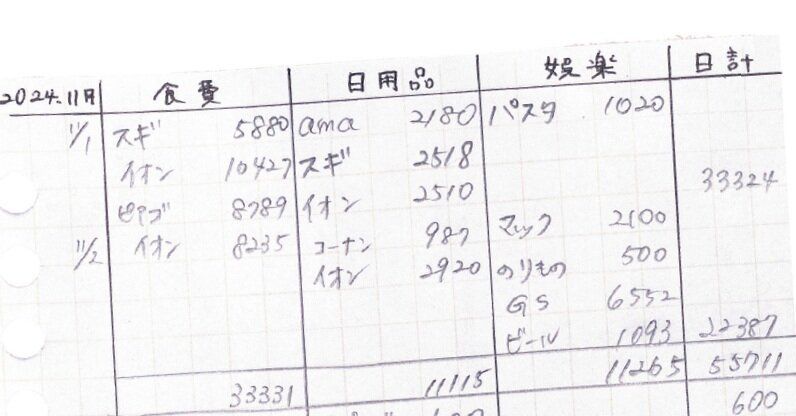 2024.11月 食費 日用品 娯楽 日計
11/1 スギ 5880 ama 2180 パスタ 1020
イオン 10427 スギ 2518
33324
ピアゴ 8789 イオン 2510
11/2 イオン 8235 コーナン 987 マック 2100
イオン 2920 のりもの 500
GS 6552
ビール 1093 22387
33331 11115 11265 55711
600